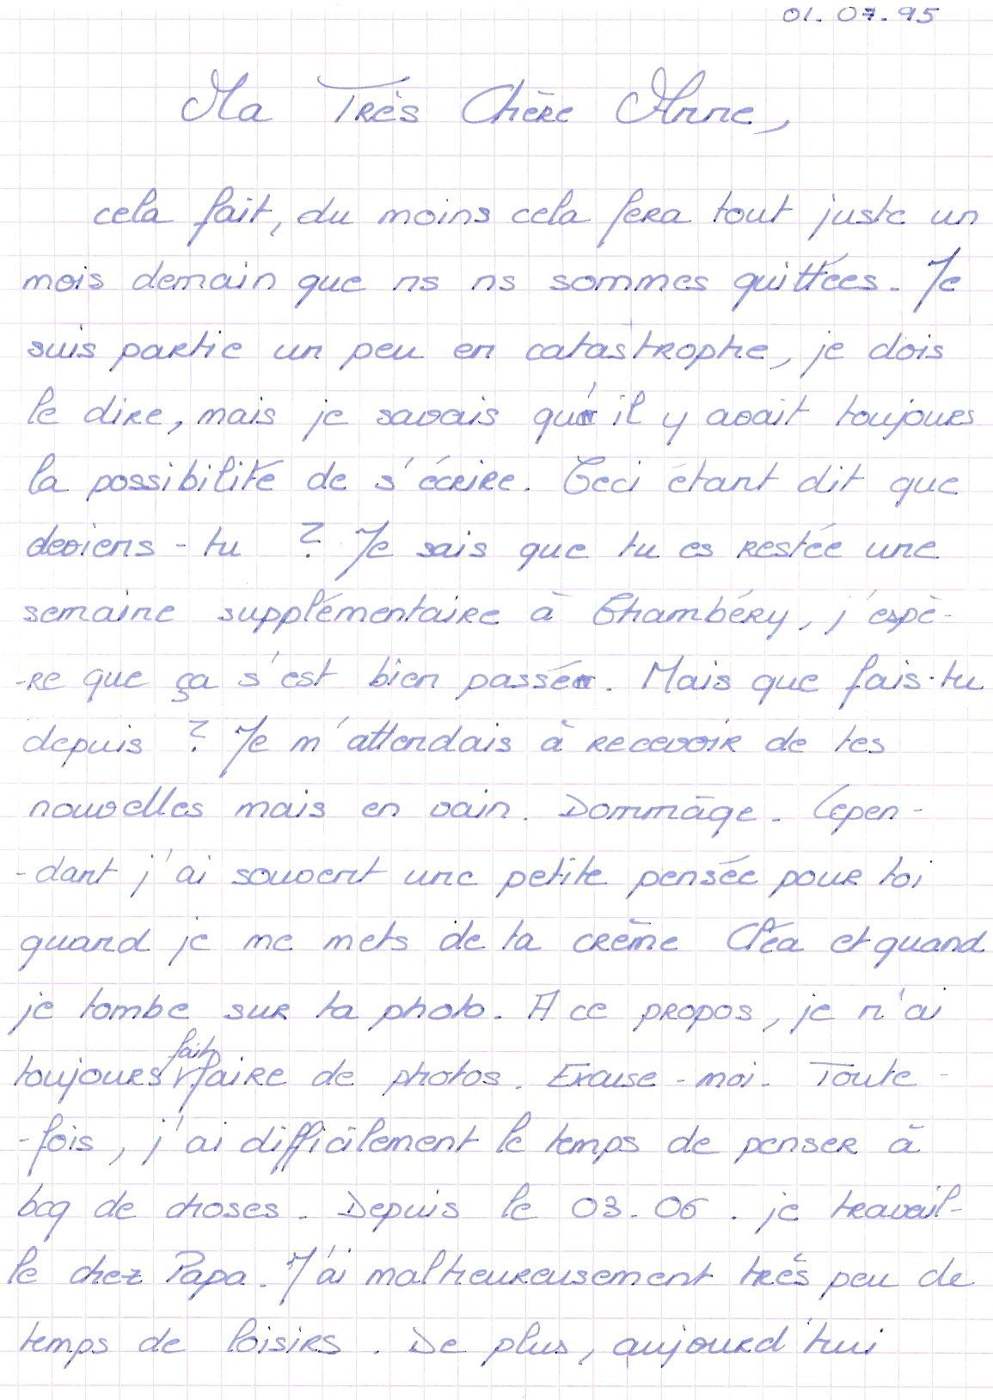 01.07.95
Ma Très Chère Anne,
cela fait, du moins cela fera tout juste un
mois demain que ns ns sommes quittées. Je
suis partie un peu en catastrophe, je dois
le dire, mais je savais qu'il y avait toujours
la possibilité de s'écrire. Ceci étant dit que
deviens-tu ? Je sais que tu es restée une
semaine supplémentaire à Chambéry, j'espè-
-re que ça s'est bien passé. Mais que fais-tu
depuis ? Je m'attendais à recevoir de tes
nouvelles mais en vain. Dommage. Cepen-
-dant j'ai souvent une petite pensée pour toi
quand je me mets de ta crème Cléa et quand
je tombe sur ta photo. A ce propos, je n'ai
toujours fait faire de photos. Excuse-moi. Toute-
-fois, j'ai difficilement le temps de penser à
bcq de choses. Depuis le 03.06. je travail-
le chez Papa. J'ai malheureusement très peu de
temps de loisirs. De plus, aujourd'hui